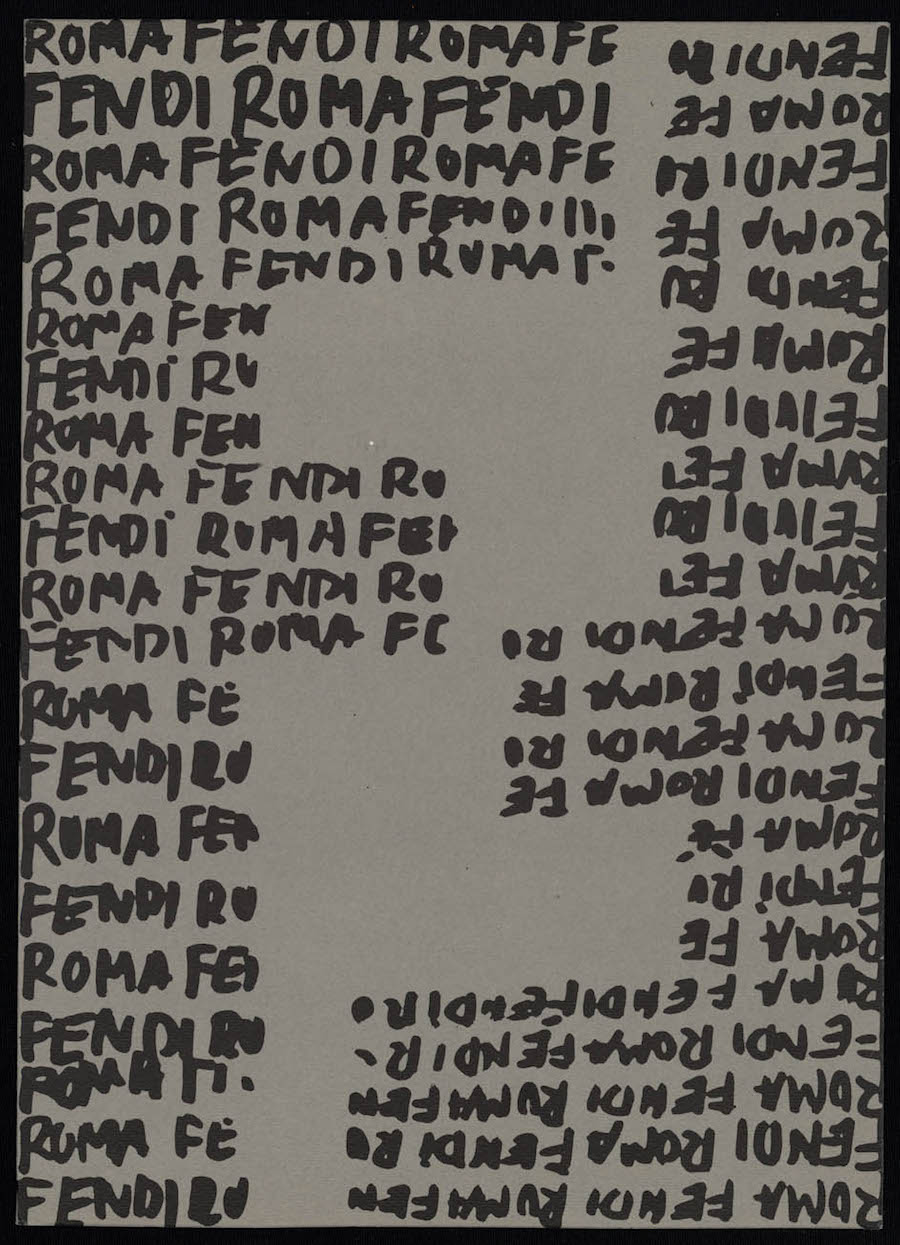 ROMAFENDIROMAFE
FENDI ROMAFENDI
ROMAFENDIROMAFE
FENDI ROMAFENDI
ROMA FENDI ROMA F
ROMA FEN
FENDI RO
ROMA FEN
ROMA FENDI RO
FENDI ROMA FEN
ROMA FENDI RO
FENDI ROMA FE
ROMA FE
FENDI RO
ROMA FEN
FENDI RO
ROMA FEN
FENDI RO
ROMA
ROMA FE
FENDI RO
ROMA FENDI ROMAFEN
FENDI ROMA FENDI RO
ROMA FENDI ROMAFEN
FENDI ROMA FENDI R
MA FENDIFENDIRO
ROMA FE
FENDI RO
ROMA FE
FENDI ROMA FE
ROMA FENDI RO
FENDI ROMA FE
ROMA FENDI RO
ROMA FEN
FENDI RO
ROMA FEN
FENDI RO
ROMA FE
FENDI RO
ROMA FE
FENDI RO
ROMA FE
FENDI RO